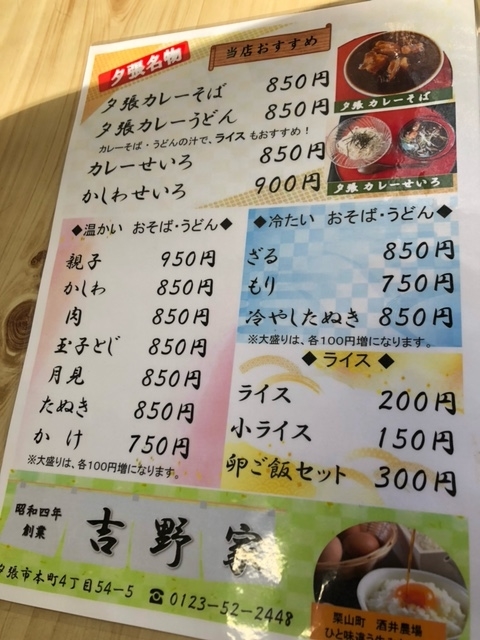 夕張名物
当店おすすめ
夕張カレーそば 850円
夕張カレーうどん 850円
カレーそば・うどんの汁で、ライスもおすすめ!
カレーせいろ 850円
かしわせいろ 900円
夕張カレーそば
夕張カレーせいろ
◆温かい おそば・うどん◆
親子 950円
かしわ 850円
肉 850円
玉子とじ 850円
月見 850円
たぬき 850円
かけ 750円
※大盛りは、各100円増になります。
◆冷たい おそば・うどん◆
ざる 850円
もり 750円
冷やしたぬき 850円
※大盛りは、各100円増になります。
◆ライス◆
ライス 200円
小ライス 150円
卵ご飯セット 300円
昭和四年
創業
吉野家
夕張市本町4丁目54-5 ☎0123-52-2448
栗山町 酒井農場
ひと味違う